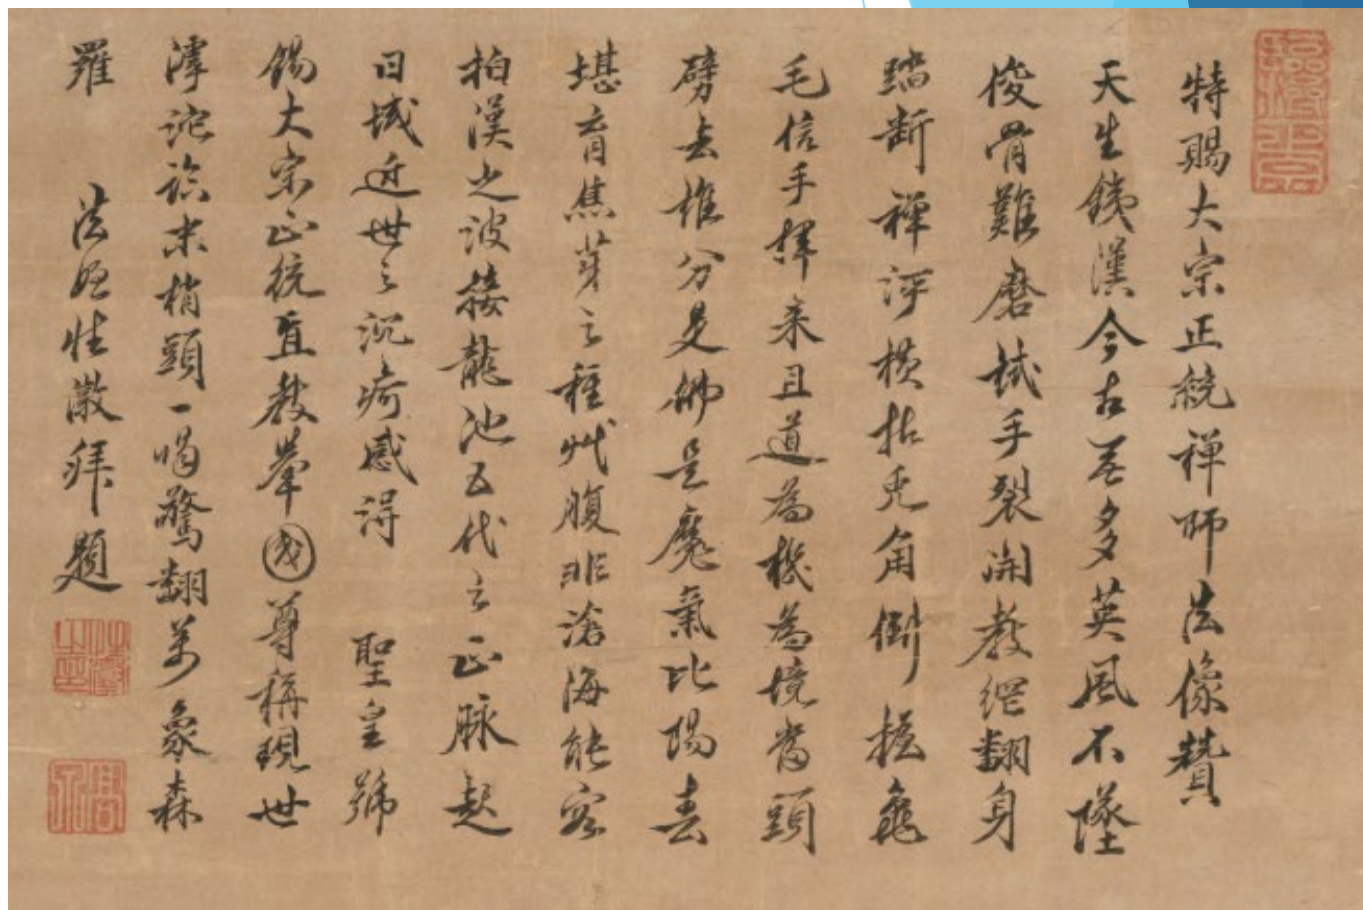 特賜大宗正統禪師法像贊
天生鐵漢今古無多英風不墜
俊骨難磨拭手裂開教網翻身
踏斷禪河橫拈兎角倒握龜
毛信手揮来且道為機為境當頭
劈去推分是佛是魔氣比陽春
堪育焦芽之種艸腹非滄海能容
拍漢之波接龍池五代之正脉起
日域近世之沉痾感得 聖皇號
錫大宗正統直教舉國尊稱現世
滹沱臨末梢頭一喝驚翻萬象森
羅 法姪性潡拜題